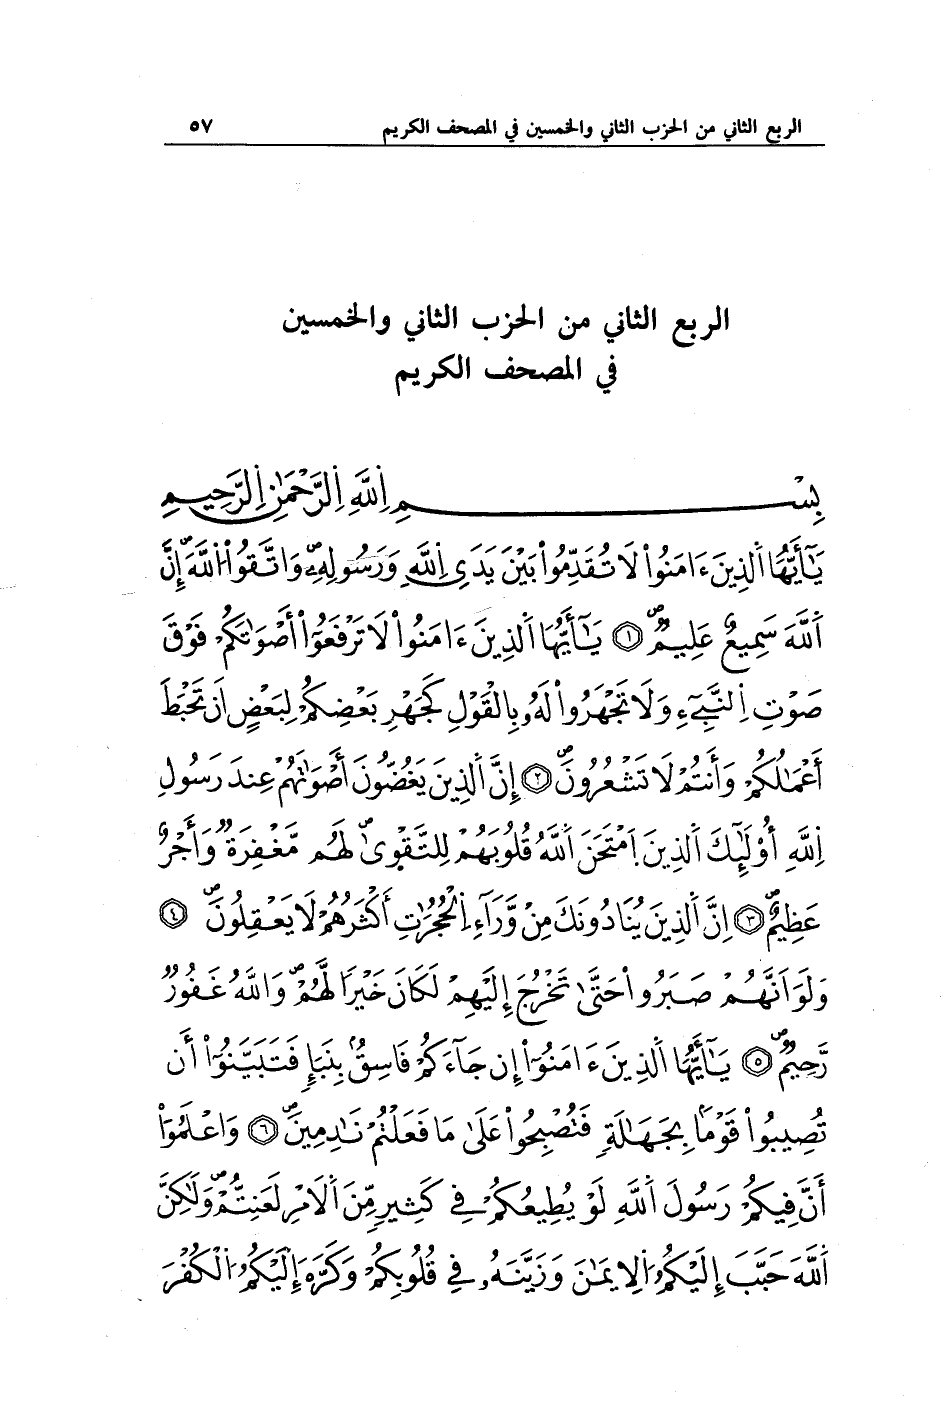 الربع الثاني من الحزب الثاني والخمسين في المصحف الكريم ٥٧
الربع الثاني من الحزب الثاني والخمسين
في المصحف الكريم
بِسْمِ اِ۬للَّهِ اِ۬لرَّحْمَٰنِ اِ۬لرَّحِيمِ
يَٰٓأَيُّهَا اَ۬لذِينَ ءَامَنُواْ لَا تُقَدِّمُواْ بَيْنَ يَدَيِ اِ۬للَّهِ وَرَسُولِهِۦۖ وَاتَّقُواْ اُ۬للَّهَۖ إِنَّ
اَ۬للَّهَ سَمِيعٌ عَلِيمٌۖ ١ يَٰٓأَيُّهَا اَ۬لذِينَ ءَامَنُواْ لَا تَرْفَعُوٓاْ أَصْوَٰتَكُمْ فَوْقَ
صَوْتِ اِ۬لنَّبِيٓءِ وَلَا تَجْهَرُواْ لَهُۥ بِالْقَوْلِ كَجَهْرِ بَعْضِكُمْ لِبَعْضٍ اَن تَحْبَطَ
أَعْمَٰلُكُمْ وَأَنتُمْ لَا تَشْعُرُونَۖ ٢ إِنَّ اَ۬لذِينَ يَغُضُّونَ أَصْوَٰتَهُمْ عِندَ رَسُولِ
اِ۬للَّهِ أُوْلَٰٓئِكَ اَ۬لذِينَ اَ۪مْتَحَنَ اَ۬للَّهُ قُلُوبَهُمْ لِلتَّقْوَىٰۖ لَهُم مَّغْفِرَةٌ وَأَجْرٌ
عَظِيمٌۖ ٣ اِنَّ اَ۬لذِينَ يُنَادُونَكَ مِنْ وَّرَآءِ اِ۬لْحُجُرَٰتِ أَكْثَرُهُمْ لَا يَعْقِلُونَۖ ٤
وَلَوَ اَنَّهُمْ صَبَرُواْ حَتَّىٰ تَخْرُجَ إِلَيْهِمْ لَكَانَ خَيْراً لَّهُمْۖ وَاللَّهُ غَفُورٌ
رَّحِيمٌۖ ٥ يَٰٓأَيُّهَا اَ۬لذِينَ ءَامَنُوٓاْ إِن جَآءَكُمْ فَاسِقُۢ بِنَبَإٍ فَتَبَيَّنُوٓاْ أَن
تُصِيبُواْ قَوْماَۢ بِجَهَٰلَةٍ فَتُصْبِحُواْ عَلَىٰ مَا فَعَلْتُمْ نَٰدِمِينَۖ ٦ وَاعْلَمُوٓاْ
أَنَّ فِيكُمْ رَسُولَ اَ۬للَّهِ لَوْ يُطِيعُكُمْ فِي كَثِيرٍ مِّنَ اَ۬لَامْرِ لَعَنِتُّمْۖ وَلَٰكِنَّ
اَ۬للَّهَ حَبَّبَ إِلَيْكُمُ اُ۬لِايمَٰنَ وَزَيَّنَهُۥ فِي قُلُوبِكُمْ وَكَرَّهَ إِلَيْكُمُ اُ۬لْكُفْرَ